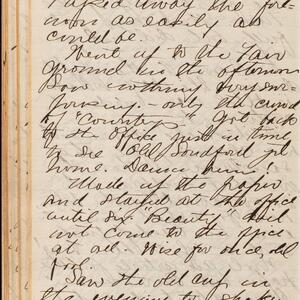 away the fore-
noon as easily as
could be.
Went up to the Fair
Ground in the afternoon
Saw nothing very sur-
prising - only the crowd
of "Country" Got back
to the office just in time
to see Old Sandford get
home. Damn him!
Made up the paper
and stayed at the office
until six. "Beauty" did
not come to the office
at all. Wise for once, old
fool.
Saw the old in
the evening